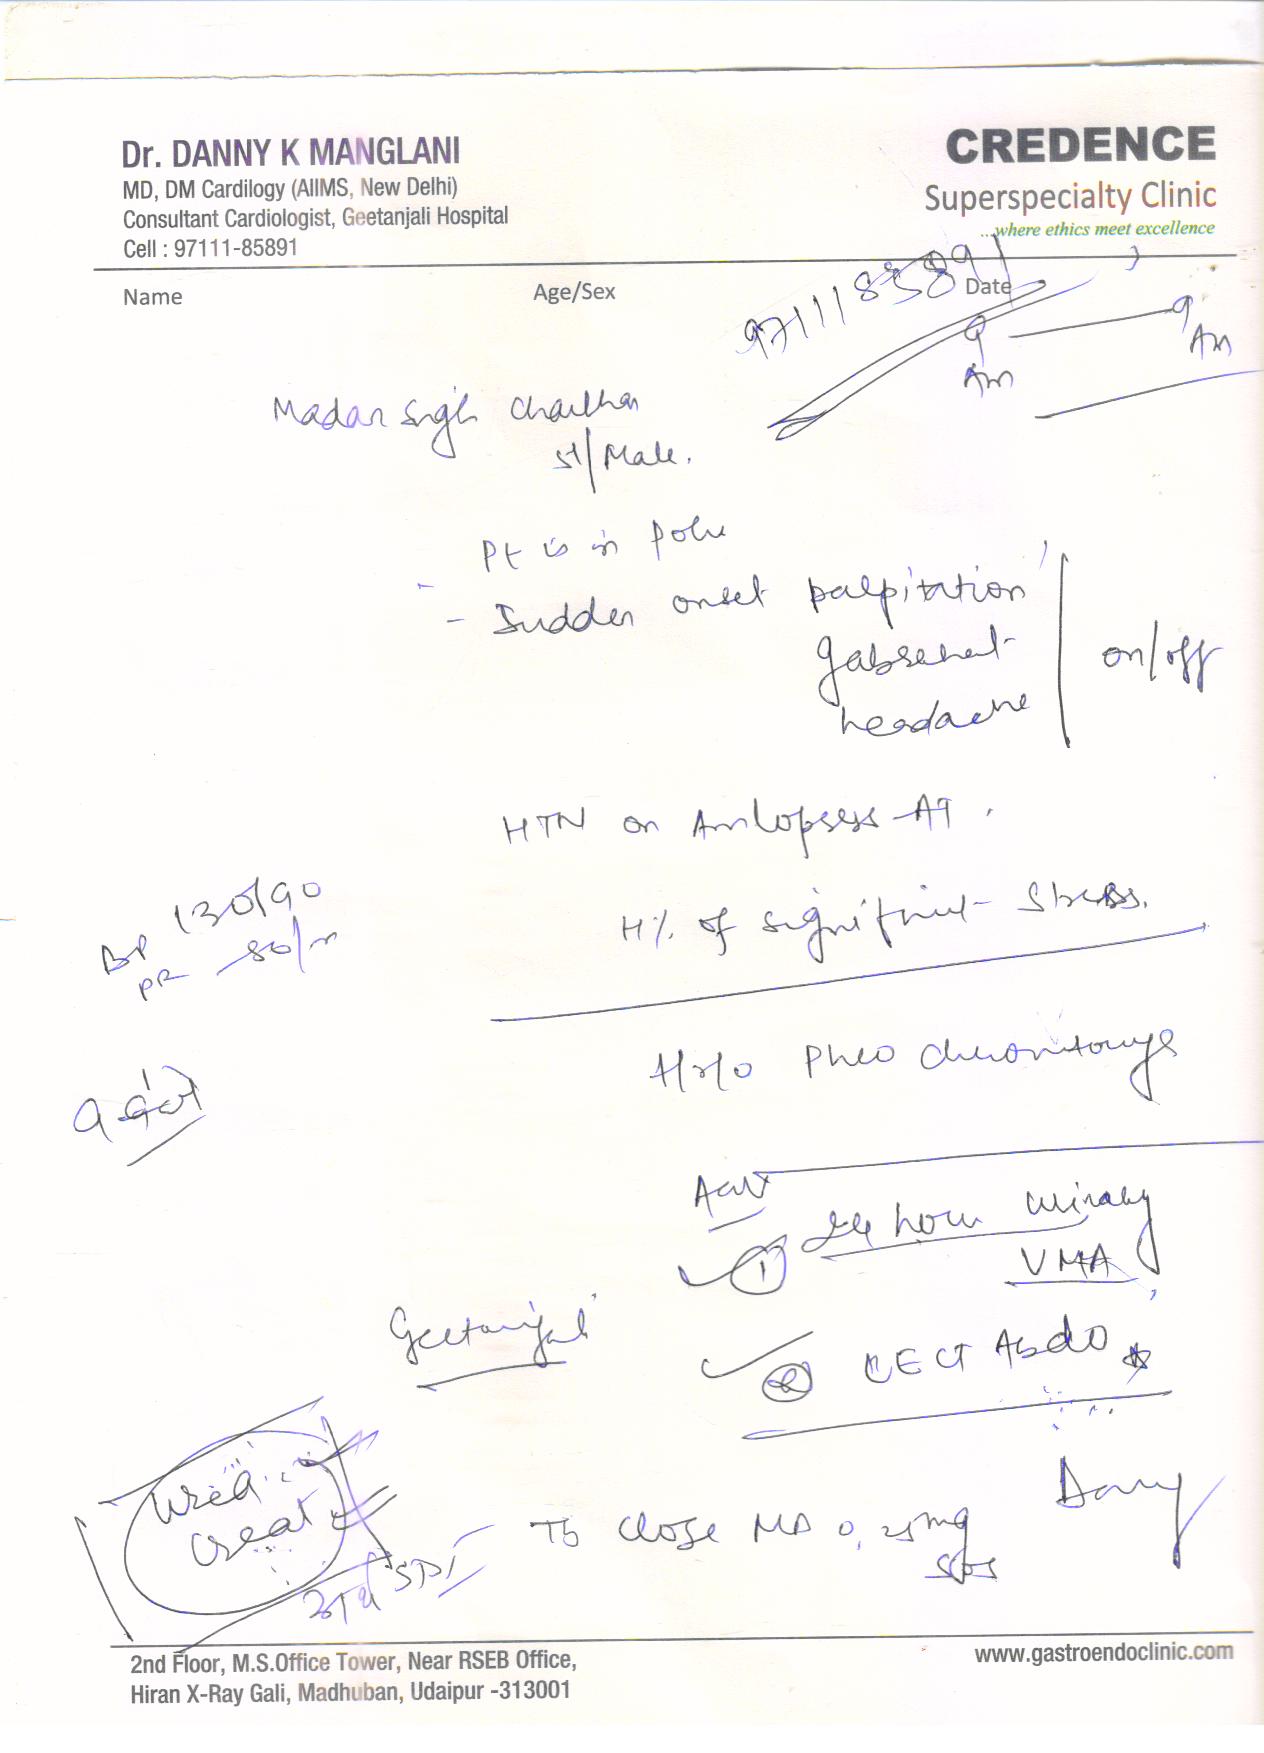 Dr. DANNY K MANGLANI
MD, DM Cardilogy (AIIMS, New Delhi)
Consultant Cardiologist, Geetanjali Hospital
Cell : 97111-85891
CREDENCE
Superspecialty Clinic
...where ethics meet excellence
Name
Age/Sex
Date
9711185891
9 Am — 9 Am
Madan Singh
51/Male.
Pt is in
- Sudden onset palpitation
gabrahat
headache
on/off
HTN on AT.
H/o of significant stress.
BP 130/90
PR 80/m
Pheo
① 24 hour urinary
VMA
Geetanjali
② CECT Abdo
Urea
Creat
Danny
Tb MD 0.25mg
SOS
2nd Floor, M.S.Office Tower, Near RSEB Office,
Hiran X-Ray Gali, Madhuban, Udaipur -313001
www.gastroendoclinic.com